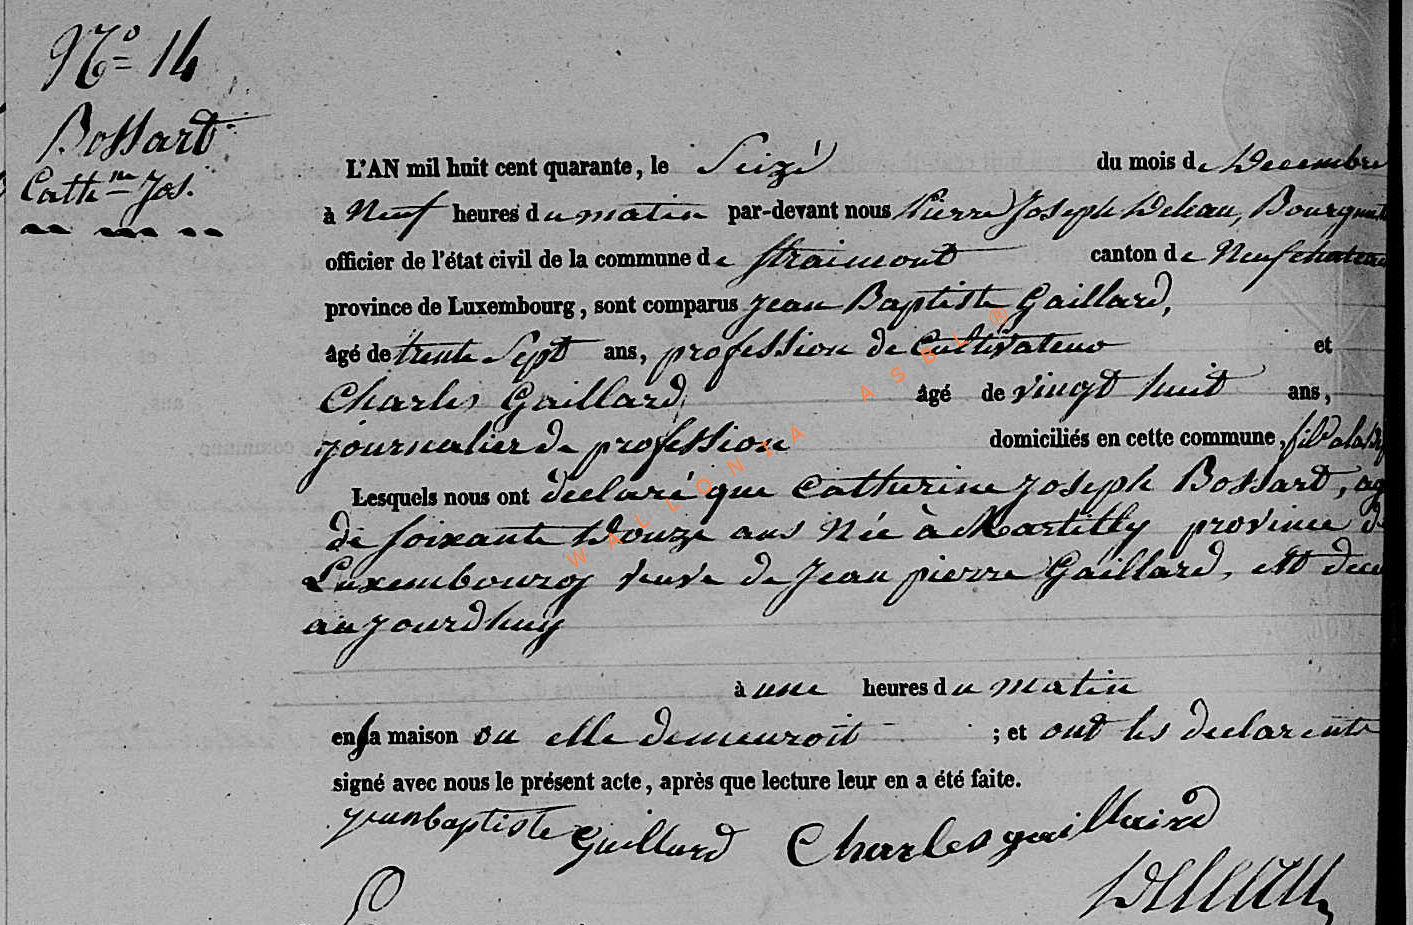 N.o 14
Bossart
Cath.ne Jos.
L'AN mil huit cent quarante, le Seizé du mois de Decembre
à Neuf heures du matin par-devant nous Pierre Joseph Deleau,
officier de l'état civil de la commune de Straimont canton de Neufchateau
province de Luxembourg, sont comparus Jean Baptiste Gaillard,
âgé de trente Sept ans, profession de Cultivateur et
Charles Gaillard, âgé de vingt huit ans,
journalier de profession domiciliés en cette commune,
Lesquels nous ont declaré que Catherine Joseph Bossart, ag
de soixante Douze ans Née à Martilly province de
Luxembourg veuve de Jean pierre Gaillard, est
aujourdhuy
à une heures du matin
en sa maison ou elle demeuroit ; et ont les declarents
signé avec nous le présent acte, après que lecture leur en a été faite.
jean baptiste Gaillard Charles gaillaird
Deleau
WALLONIA ASBL ®